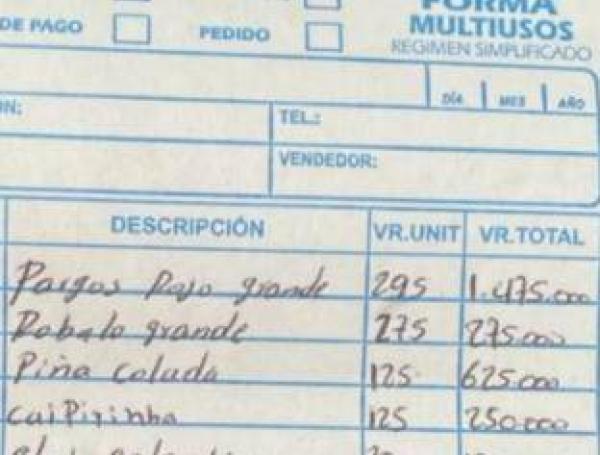 FORMA
DE PAGO PEDIDO MULTIUSOS
REGIMEN SIMPLIFICADO
DÍA MES AÑO
TEL.:
VENDEDOR:
DESCRIPCIÓN VR.UNIT VR.TOTAL
Pargos Rojo grande 295 1.475.000
Robalo grande 275 275.000
Piña colada 125 625.000
caiPirinha 125 250.000